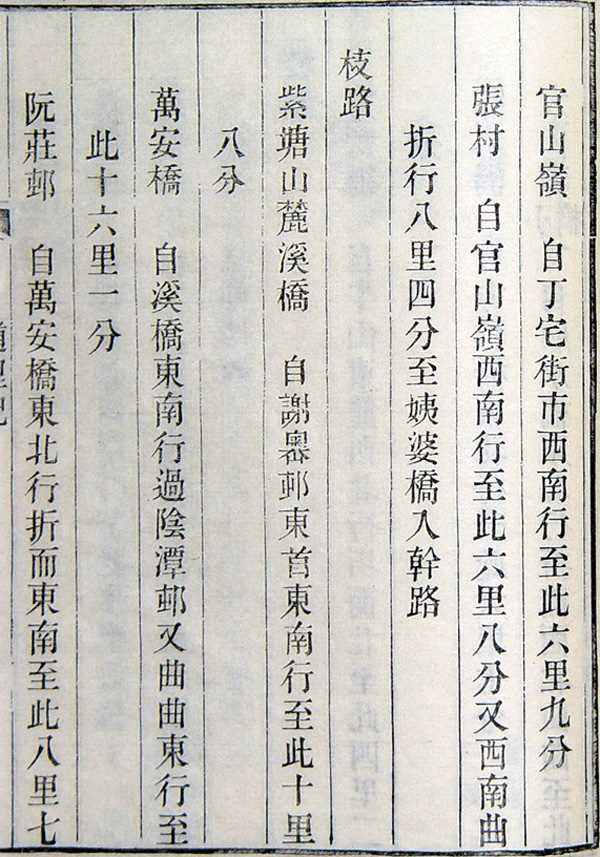 官山嶺 自丁宅街市西南行至此六里九分
張村 自官山嶺西南行至此六里八分又西南曲
折行八里四分至姨婆橋入幹路
枝路
紫塘山麓溪橋 自謝嶴邨東首東南行至此十里
八分
萬安橋 自溪橋東南行過陰潭邨又曲曲東行至
此十六里一分
阮莊邨 自萬安橋東北行折而東南至此八里七
道里記